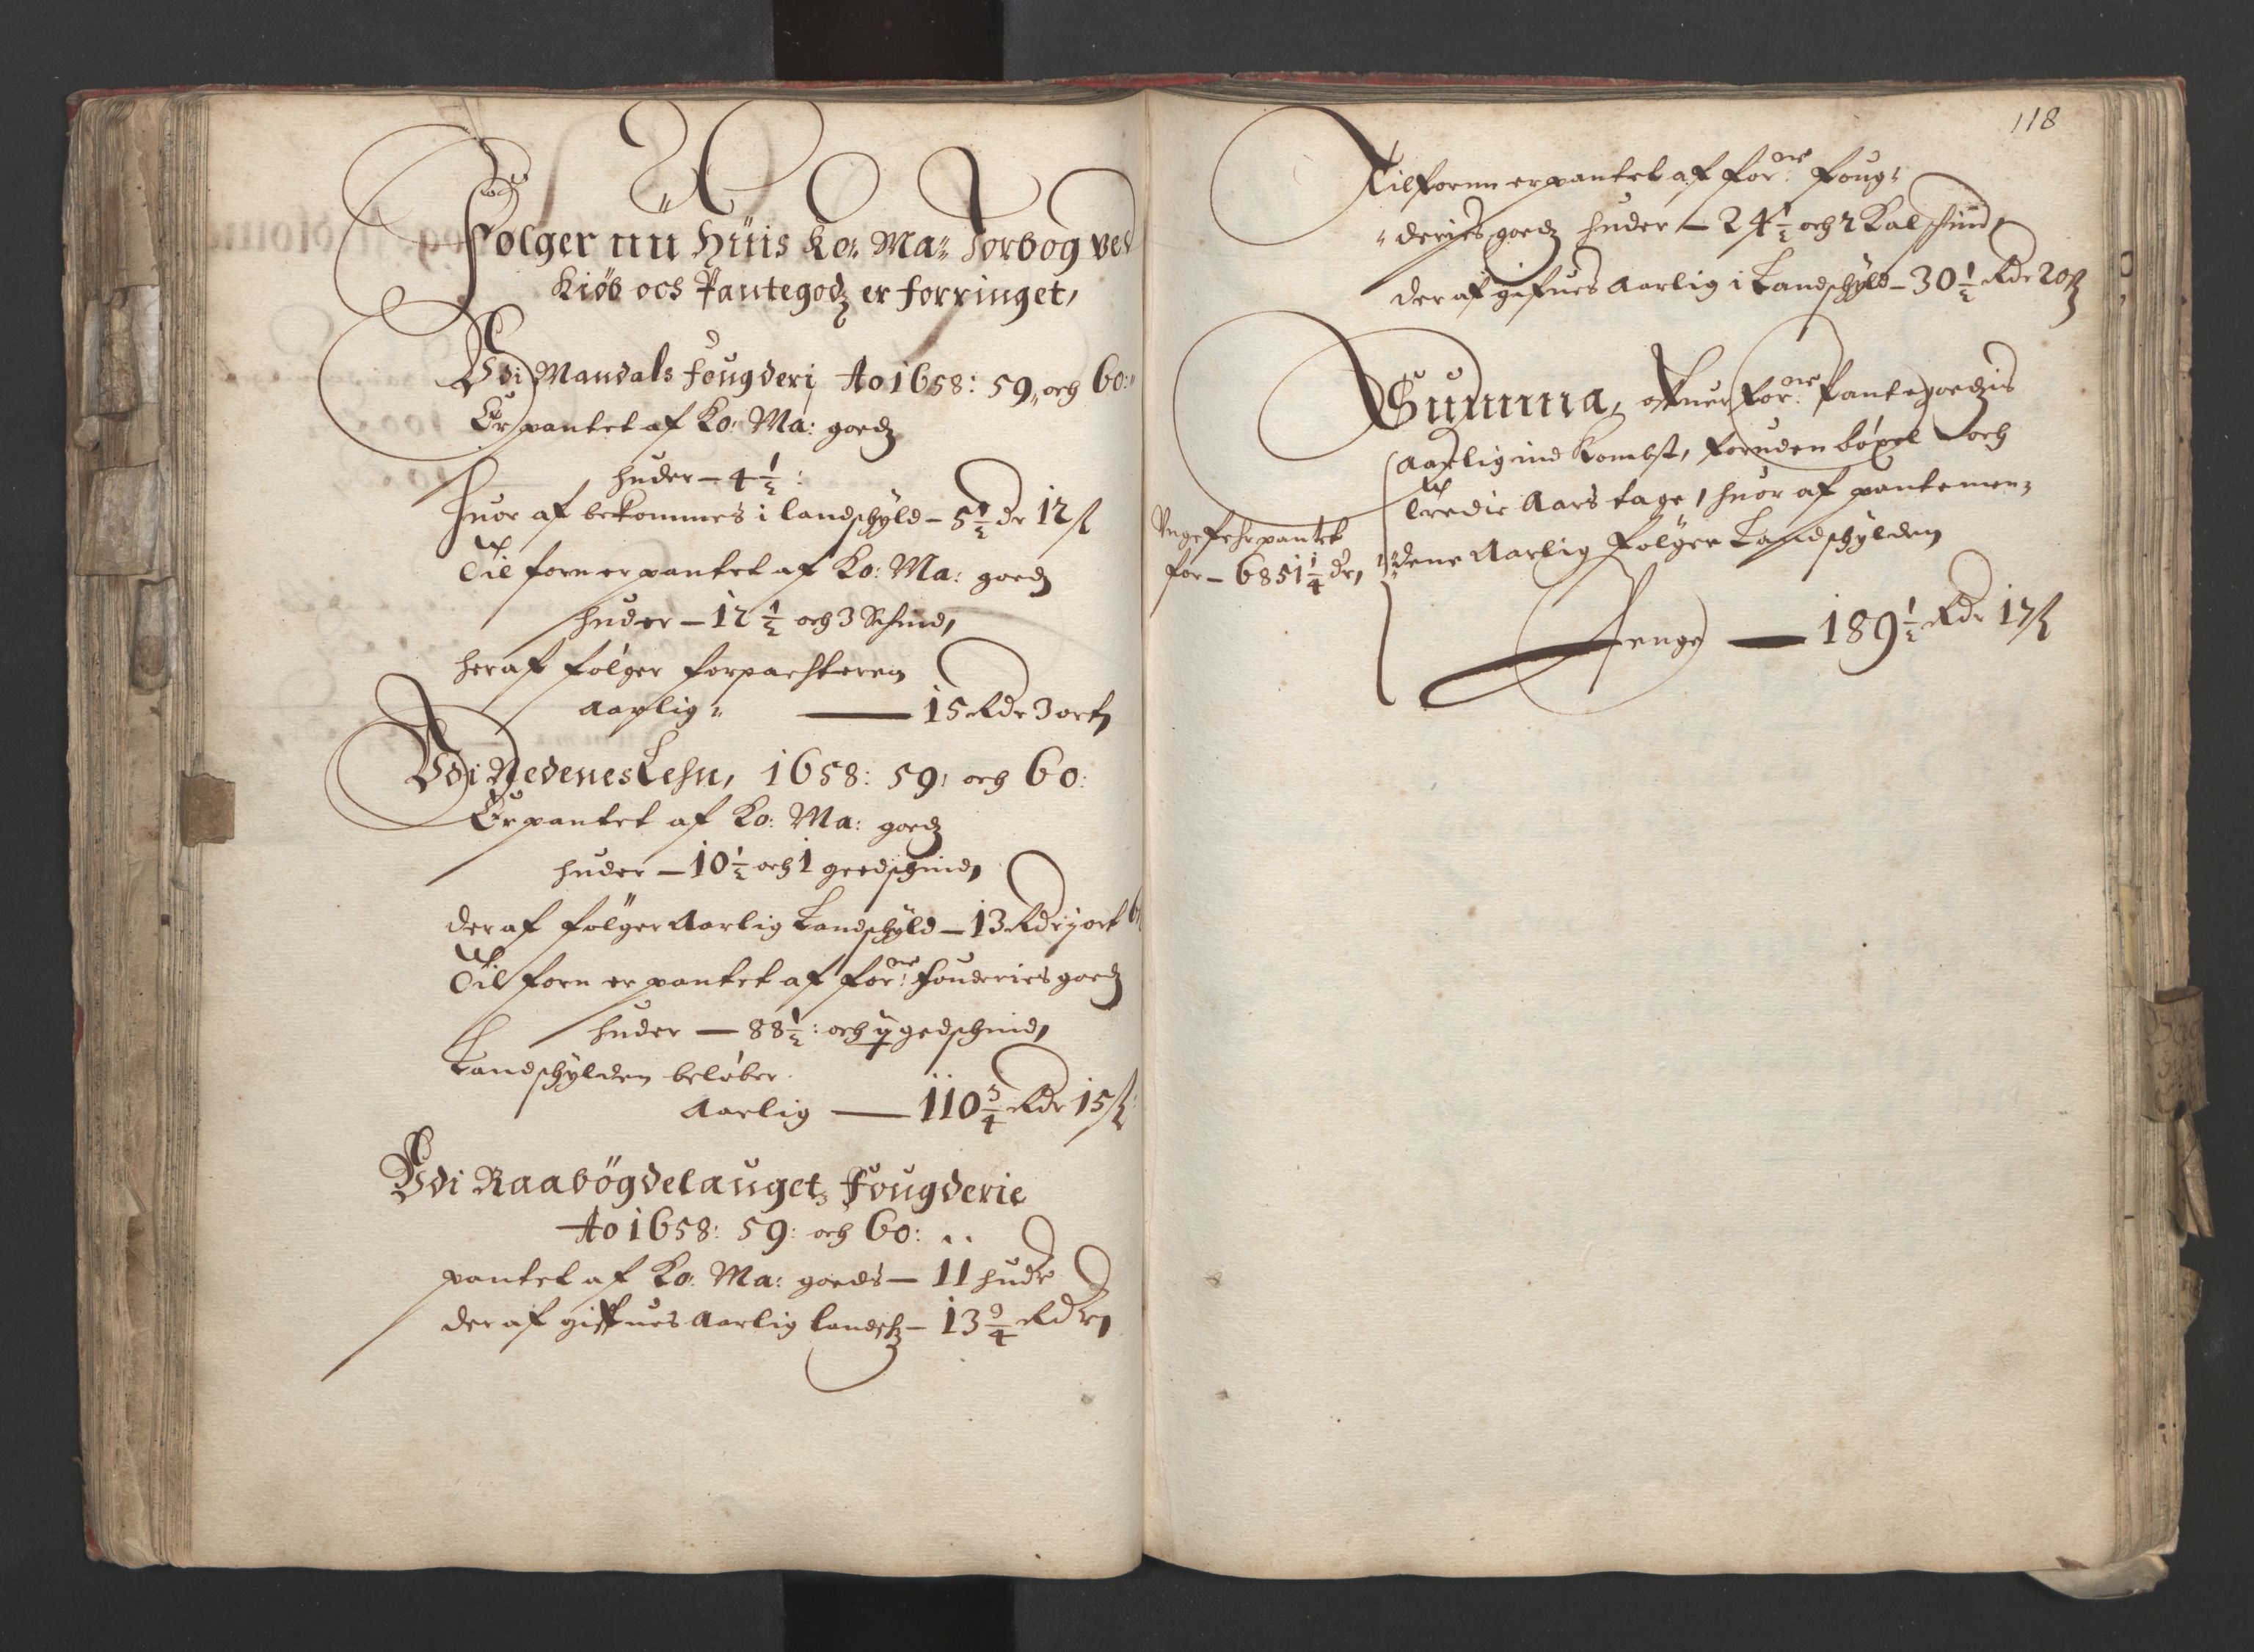 Følger nu Huis Ko: Ma: Jorbog ved
Kiøb och Pantegodz er forringet,
Vdi Mandals fougderj Ao 1658: 59, och 60:
Er pantet af Ko: Ma: goedz
huder - 4 1/2 :
huor af bekommes i landschyld - 5 1/2 dr 12 ß
Til forn er pantet af Ko: Ma: goedz
huder - 12 1/2 och 3 Schind,
her af følger forpachteren
Aarlig - 15 Rdr 3 ort
Vdi Nedenes Lehn, 1658: 59, och 60:
Er pantet af Ko: Ma: goedz
huder - 10 1/2 och 1 geedschind,
der af følger Aarlig Landschyld - 13 Rdr j ort 6
Til forn er pantet af for:ne fouderies goedz
huder - 88 1/2 : och gedschind,
Landschylden beløber
Aarlig - 110 3/4 Rdr 15 ß
Vdi Raabögdelaugetz Fougderie
Ao 1658: 59: och 60:
pantet af Ko: Ma: goeds - 11 hudr
der af giffues Aarlig landsch - 13 3/4 Rdr,
118
Tilfornn er pantet af for:ne foug-
deries goedz huder - 24 1/2 och 2 Kalschind,
der af gifues Aarlig i Landschyld - 30 1/2 Rdr 20 ß
Summa, ofuer for:ne Pantegoedzis
Aarlig ind Kombst, foruden böxel och
tredie Aars tage, huor af pantemen-
dene Aarlig følger Landschylden
Penge - 189 1/2 Rdr 17 ß
Vngefehr pantet
for - 6851 1/4 dr,